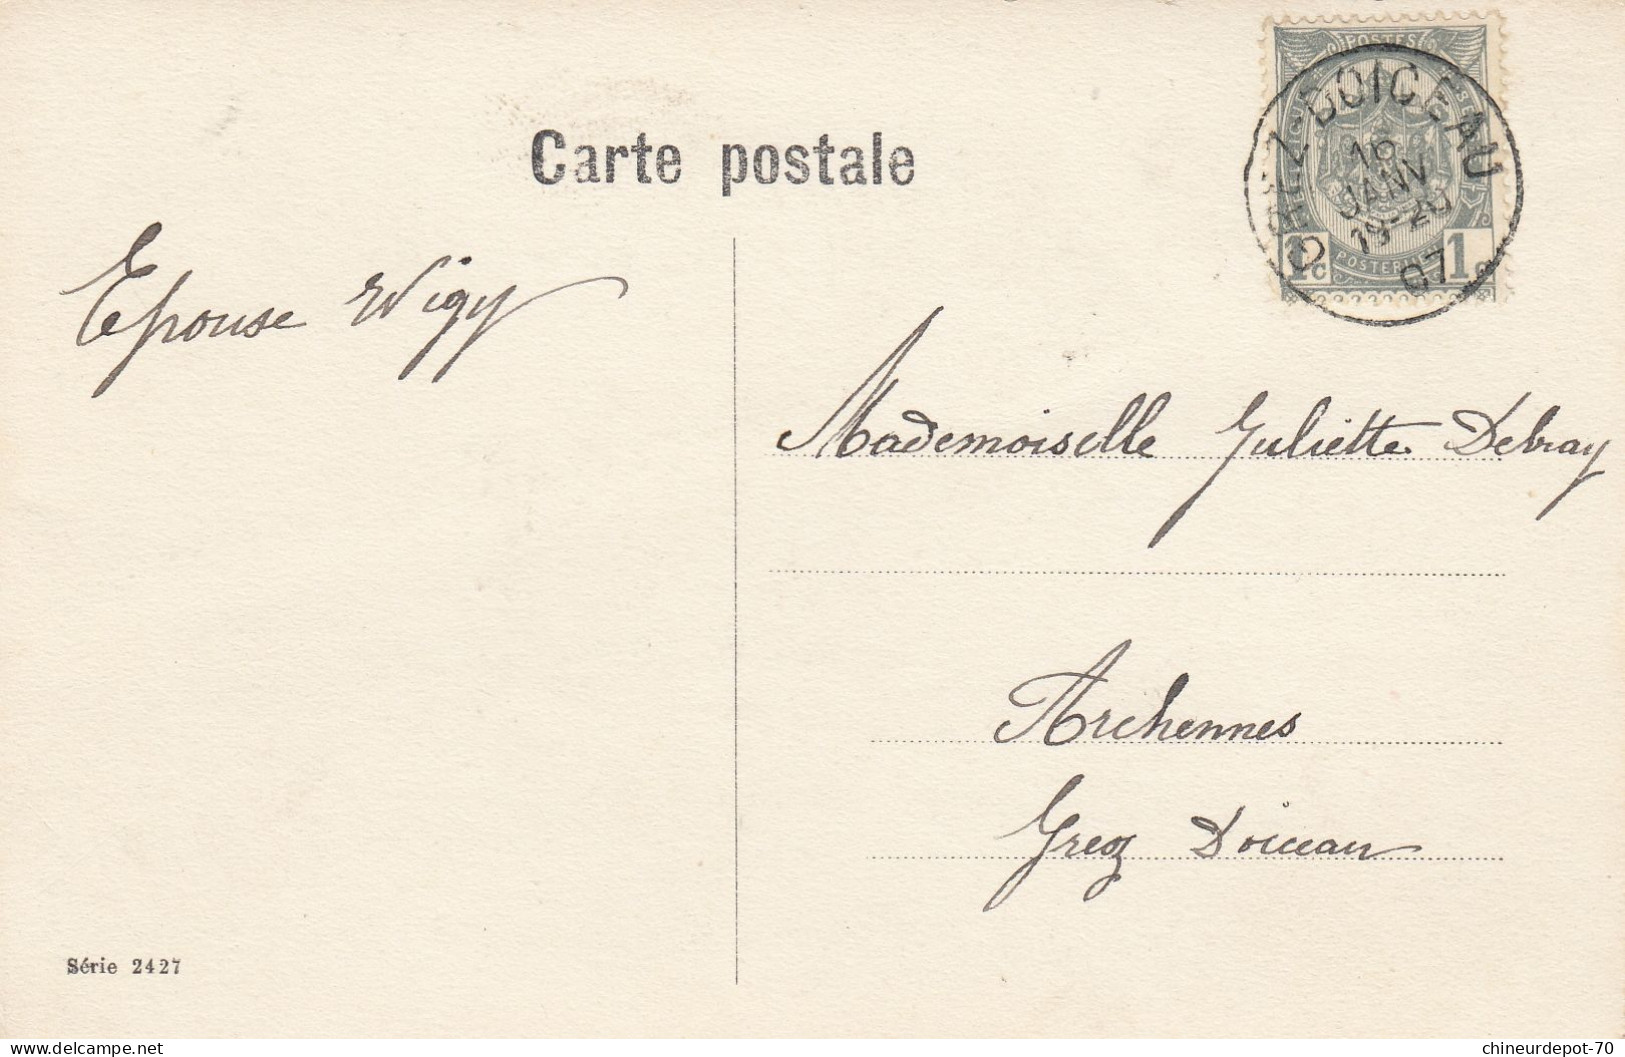 Carte postale
POSTES
GREZ-DOICEAU
16
JANV
19-20
07
1c 1c
Epouse Wigy
Mademoiselle Juliette Debray
Archennes
Grez Doiceau
Série 2427
delcampe.net
chineurdepot-70